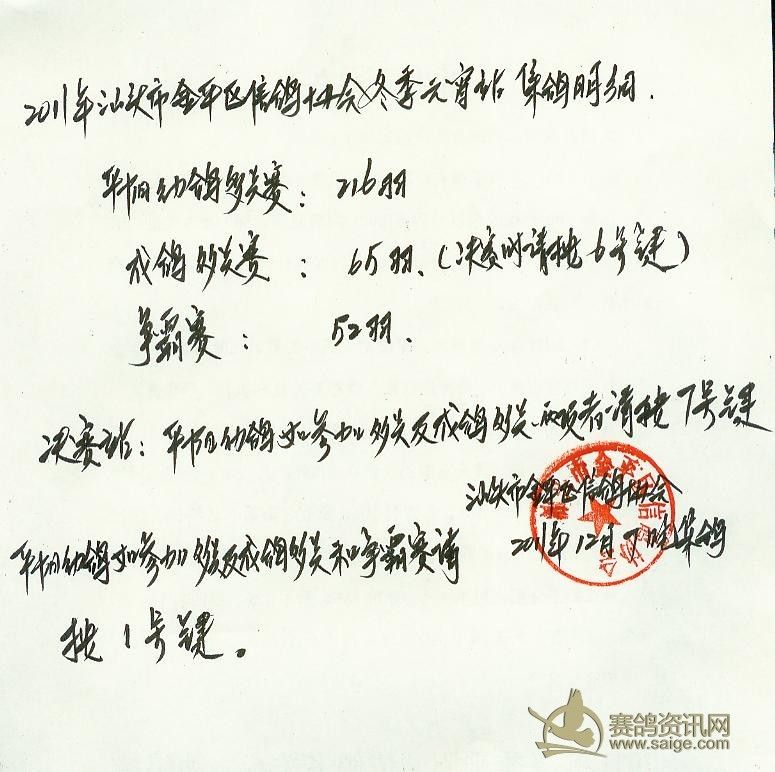 2011年汕头市金平区信鸽协会冬季元宵站集鸽明细.
幼鸽多关赛: 216羽
成鸽多关赛: 65羽.(决赛时请按6号键)
争霸赛: 52羽.
决赛站: 幼鸽如参加多关及成鸽多关两项者请按7号键
汕头市金平区信鸽协会
2011年12月7晚集鸽
幼鸽如参加多关及成鸽多关和争霸赛请
按1号键。
赛鸽资讯网
www.saige.com